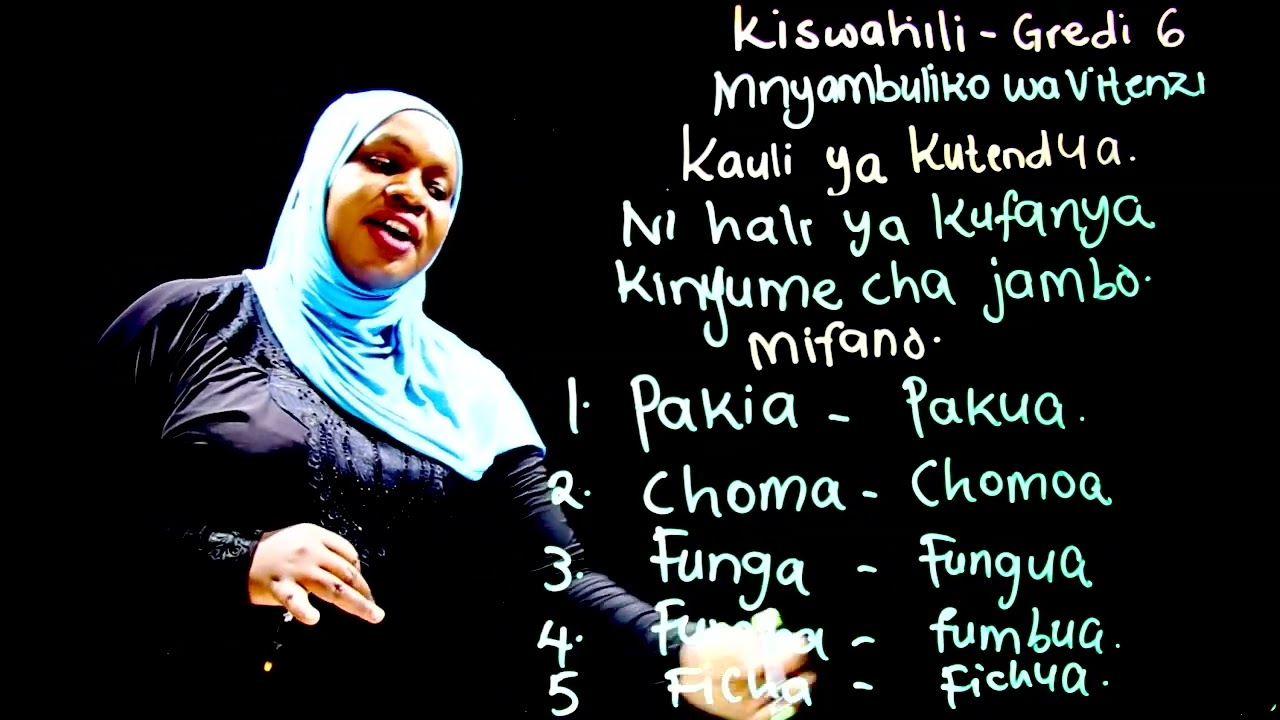 Kiswahili - Gredi 6
Mnyambuliko wa Vitenzi
Kauli ya Kutendua.
Ni hali ya Kufanya
Kinyume cha jambo.
Mifano.
1. Pakia - Pakua.
2. Choma - Chomoa
3. Funga - Fungua
4. Fumba - fumbua.
5 Ficha - Fichua.